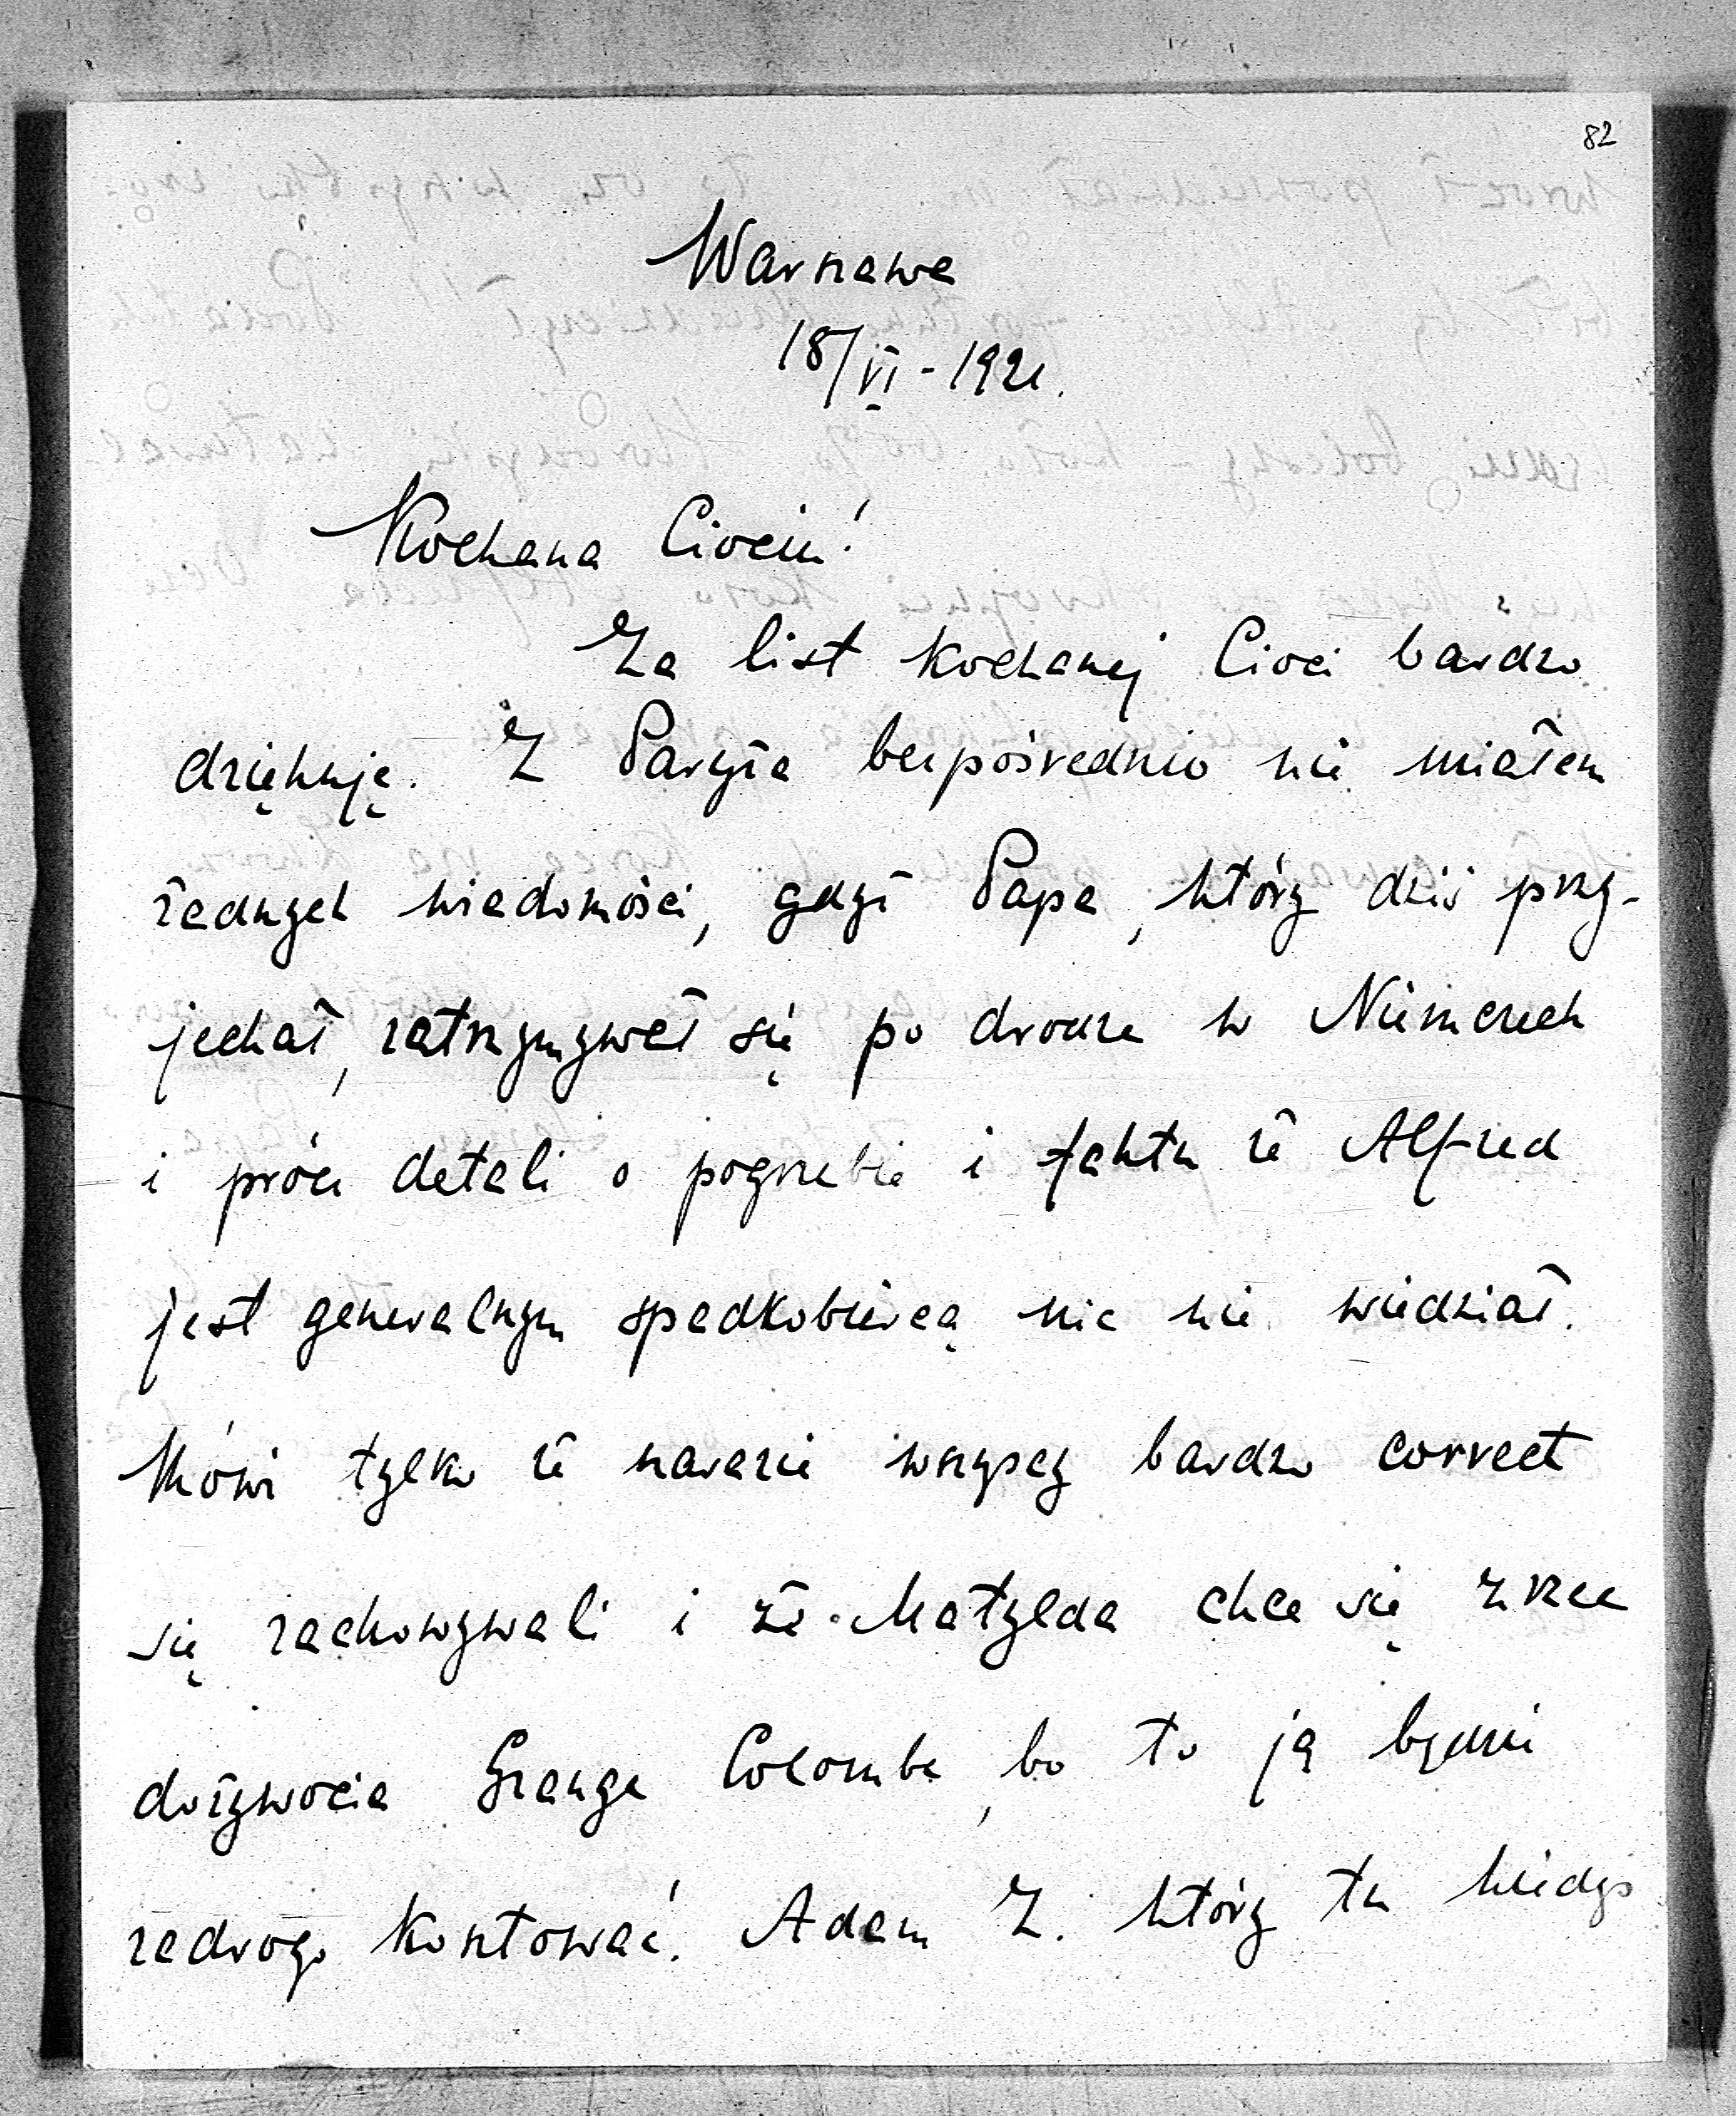 82
Warszawa
18/VI - 1921.
Kochana Ciociu!
Za list kochanej Cioci bardzo
dziękuję. Z Paryża bezpośrednio nie miałem
żadnych wiadomości, gdyż Papa, który dziś przy-
jechał, zatrzymywał się po drodze w Niemczech
i prócz detali o pogrzebie i faktu że Alfred
jest generalnym spadkobiercą nic nie wiedział.
Mówi tylko że narazie wszyscy bardzo correct
się zachowywali i że Matylda chce się zrzec
dożywocia Grange Colombe, bo to ją będzie
zadrogo kosztować. Adam Z. który tu kiedyś